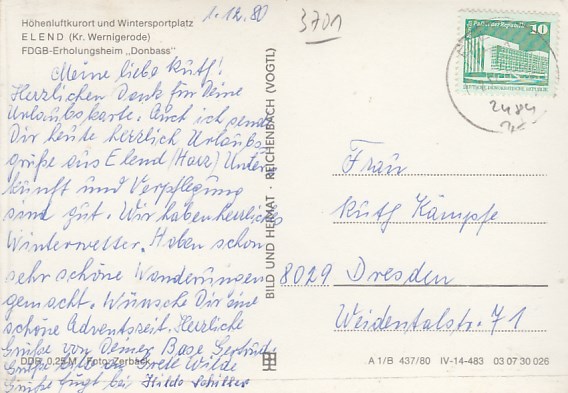 Höhenluftkurort und Wintersportplatz
ELEND (Kr. Wernigerode)
FDGB-Erholungsheim „Donbass"
1.12.80
3701
Meine liebe Ruth!
Herzlichen Dank für Deine
Urlaubskarte. Auch ich sende
Dir heute herzlich Urlaubs
grüße aus Elend (Harz) Unter
kunft und Verpflegung
sind gut. Wir haben herrliches
Winterwetter. Haben schon
sehr schöne Wanderungen
gemacht. Wünsche Dir eine
schöne Adventszeit. Herzliche
Grüße von Deiner Base Gertrude
Grüße
Grete Wilde
Grüße fügt bei Hilde Schiller
DDR 0,25 M Foto: Zerback
BILD UND HEIMAT · REICHENBACH (VOGTL)
10
DEUTSCHE DEMOKRATISCHE REPUBLIK
Frau
Ruth Kämpfe
8029 Dresden
Weidentalstr. 71
A 1/B 437/80 IV-14-483 03 07 30 026